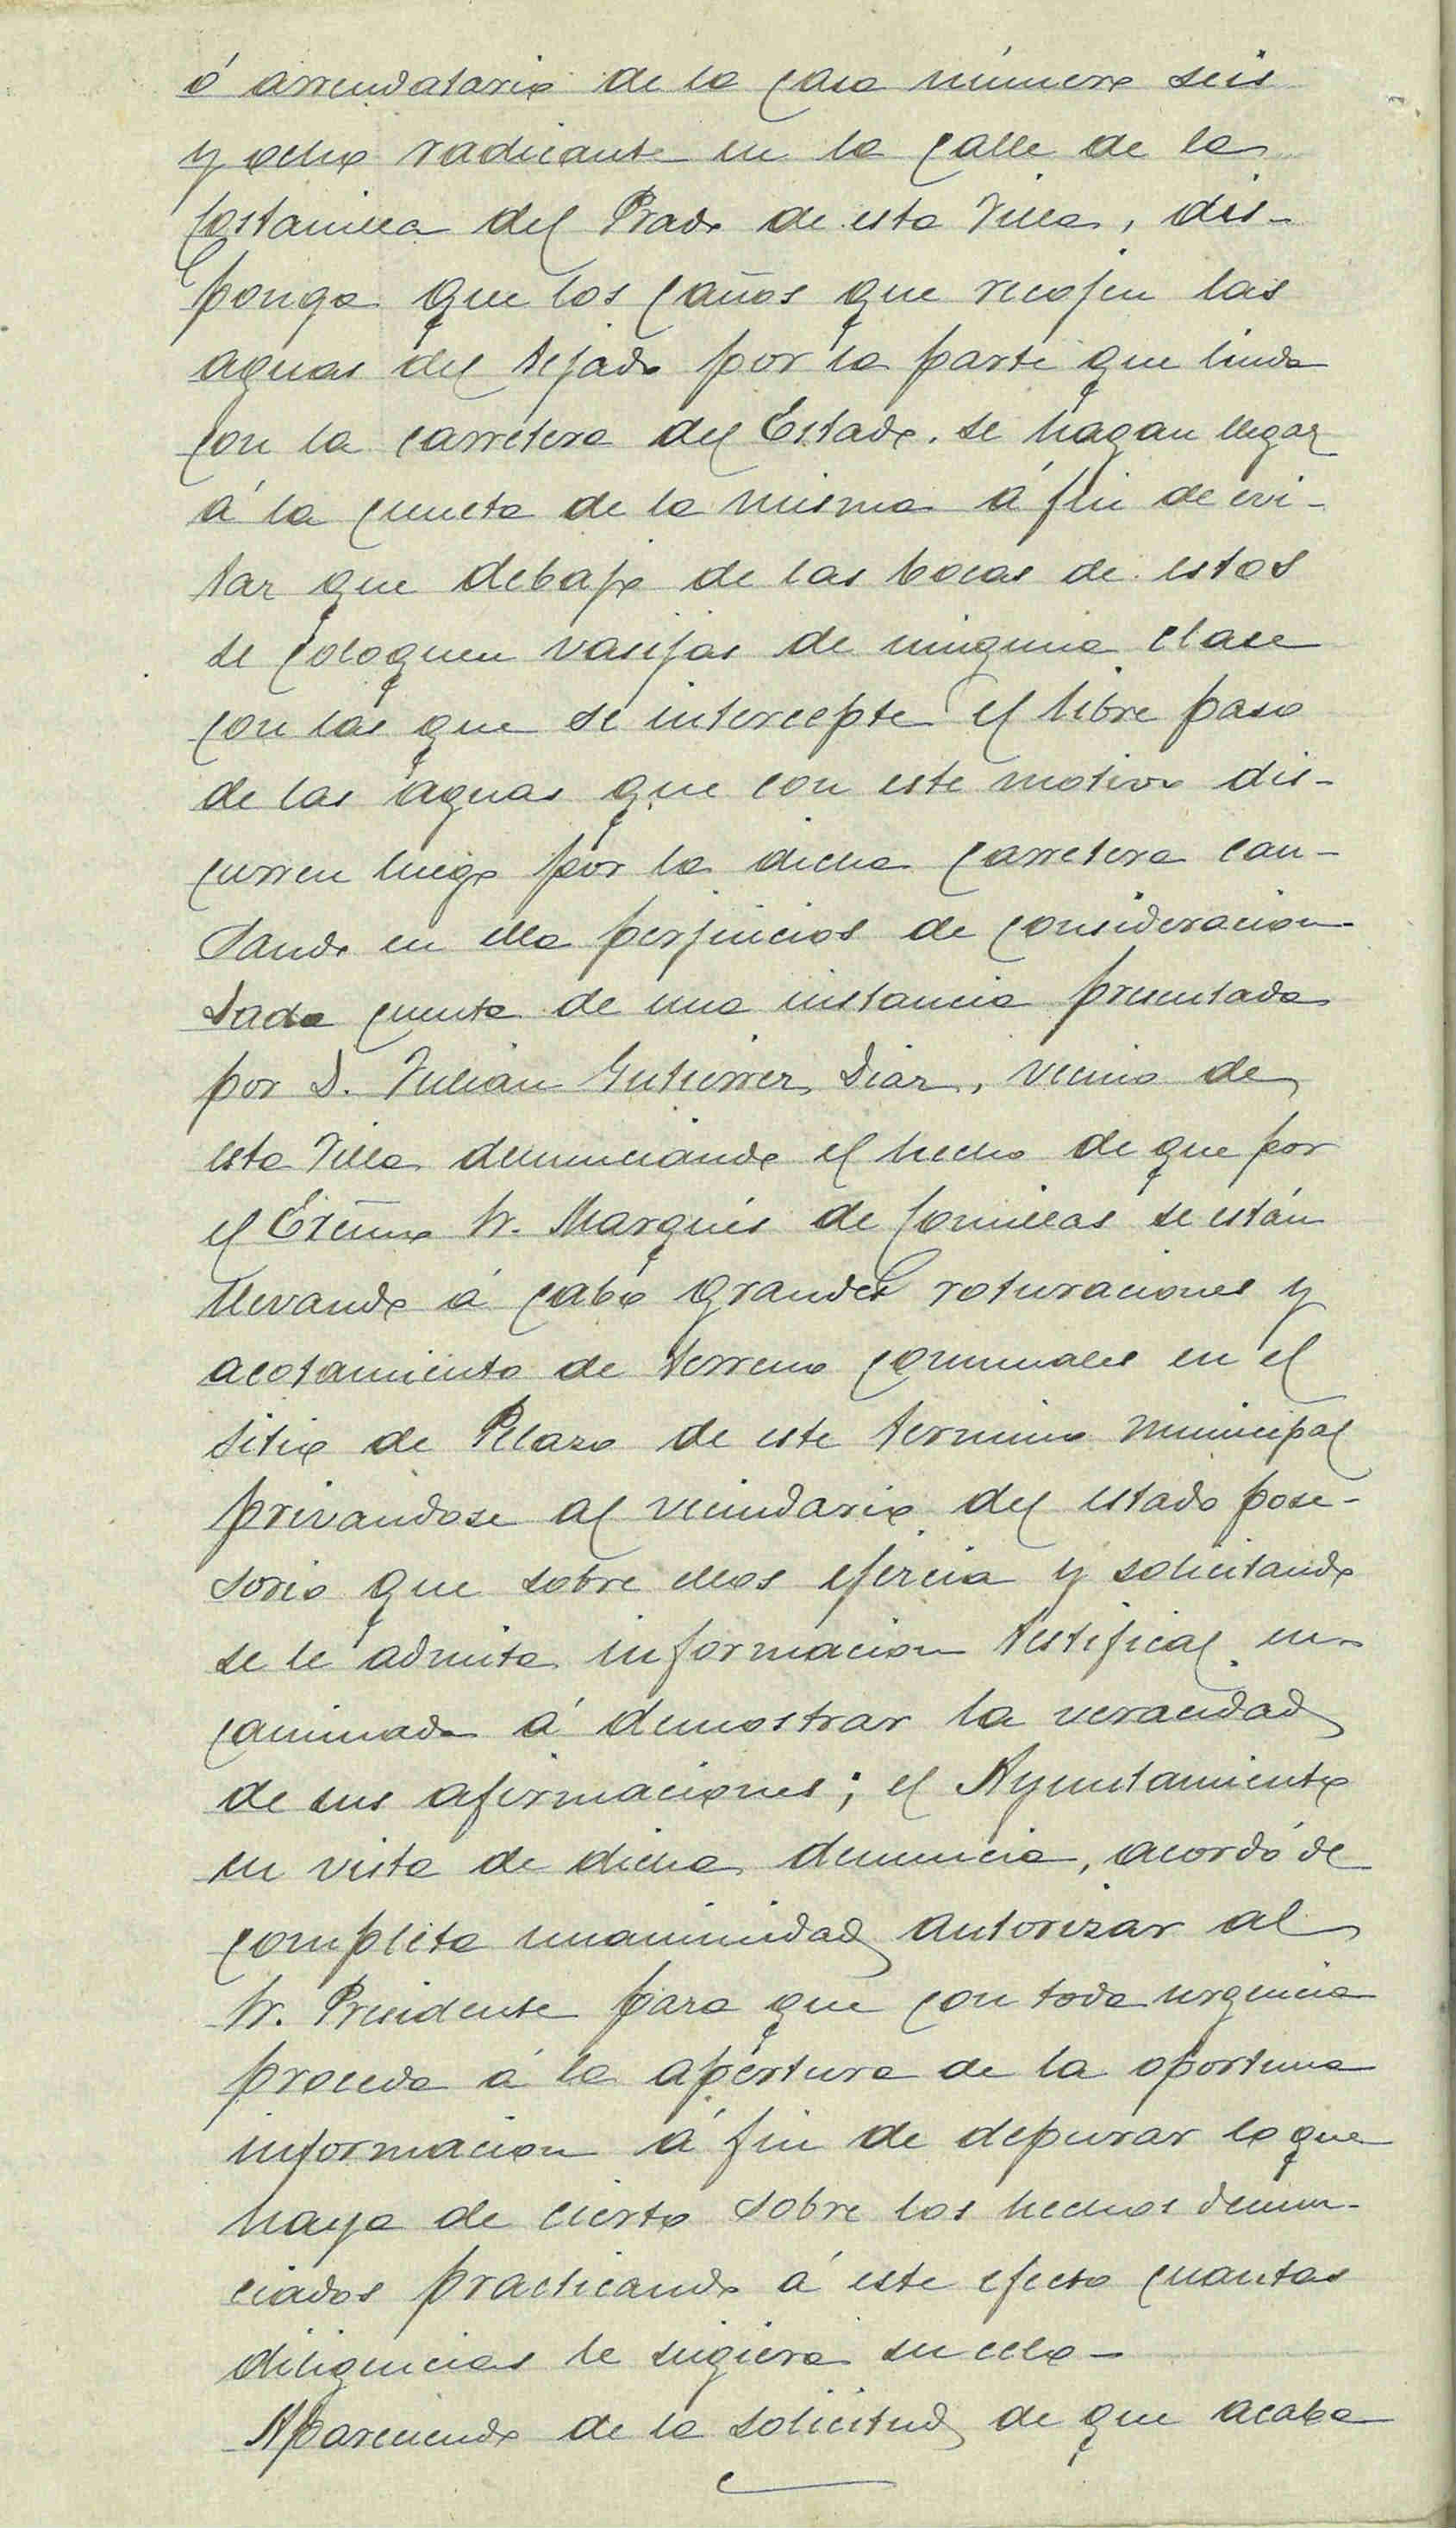 ó arrendatario de la casa número seis
y ocho radicante en la calle de la
Costanilla del Prado de esta Villa, dis-
ponga que los caños que recojen las
aguas del tejado por la parte que linda
con la carretera del Estado, se hagan llegar
á la cuneta de la misma á fin de evi-
tar que debajo de las bocas de estos
se coloquen vasijas de ninguna clase
con las que se intercepte el libre paso
de las aguas que con este motivo dis-
curren luego por la dicha carretera cau-
sando en ella perjuicios de consideracion
Dada cuenta de una instancia presentada
por D. Julián Gutiérrez Diaz, vecino de
esta Villa denunciando el hecho de que por
el Excmo Sr. Marqués de Comillas se están
llevando á cabo grandes roturaciones y
acotamiento de terreno comunales en el
sitio de Pelazo de este termino municipal
privandose al vecindario del estado pose-
sorio que sobre ellos ejercia y solicitando
se le admita informacion testifical en-
caminada á demostrar la veracidad
de sus afirmaciones; el Ayuntamiento
en vista de dicha denuncia, acordó de
completa unanimidad autorizar al
Sr. Presidente para que con toda urgencia
proceda á la apertura de la oportuna
informacion á fin de depurar lo que
haya de cierto sobre los hechos denun-
ciados practicando á este efecto cuantas
diligencias le sugiera su celo-
Apareciendo de la solicitud de que acaba